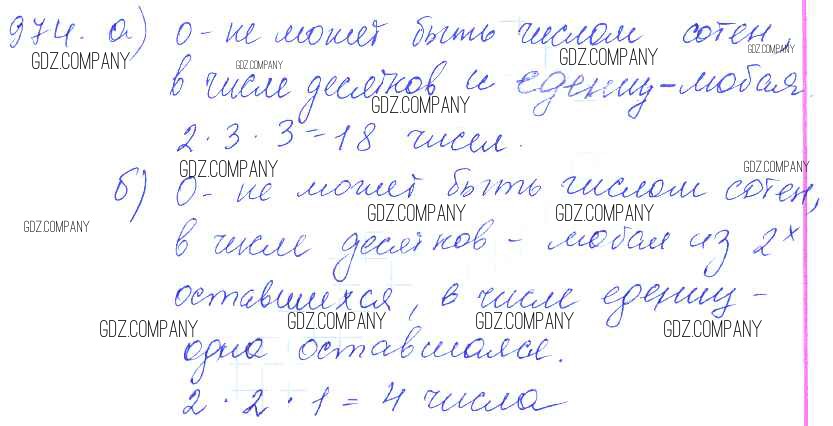 974. а) 0 - не может быть числом сотен,
GDZ.COMPANY GDZ.COMPANY GDZ.COMPANY
в числе десятков и едениц - любая.
GDZ.COMPANY
2 · 3 · 3 = 18 чисел.
GDZ.COMPANY GDZ.COMPANY
б) 0 - не может быть числом сотен,
GDZ.COMPANY GDZ.COMPANY GDZ.COMPANY
в числе десятков - любая из 2х
оставшихся, в числе едениц -
GDZ.COMPANY GDZ.COMPANY GDZ.COMPANY GDZ.COMPANY
одна оставшаяся.
2 · 2 · 1 = 4 числа